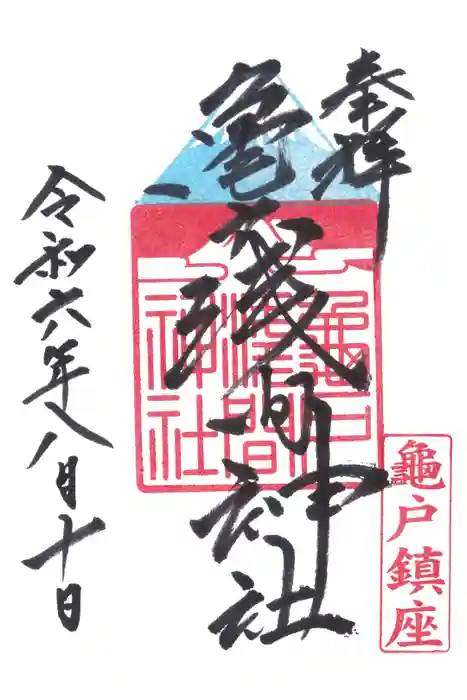 奉拝
亀戸浅間神社
令和六年八月十日
龜戸
淺間
神社
龜戸鎮座